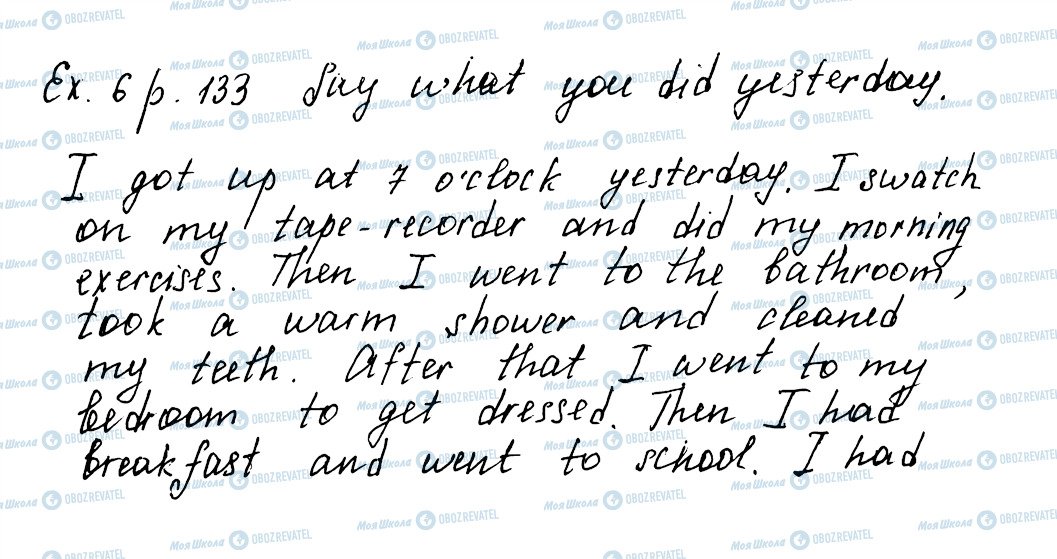 Ex. 6 p. 133 Say what you did yesterday.
I got up at 7 o'clock yesterday. I swatch
on my tape-recorder and did my morning
exercises. Then I went to the bathroom,
took a warm shower and cleaned
my teeth. After that I went to my
bedroom to get dressed. Then I had
breakfast and went to school. I had